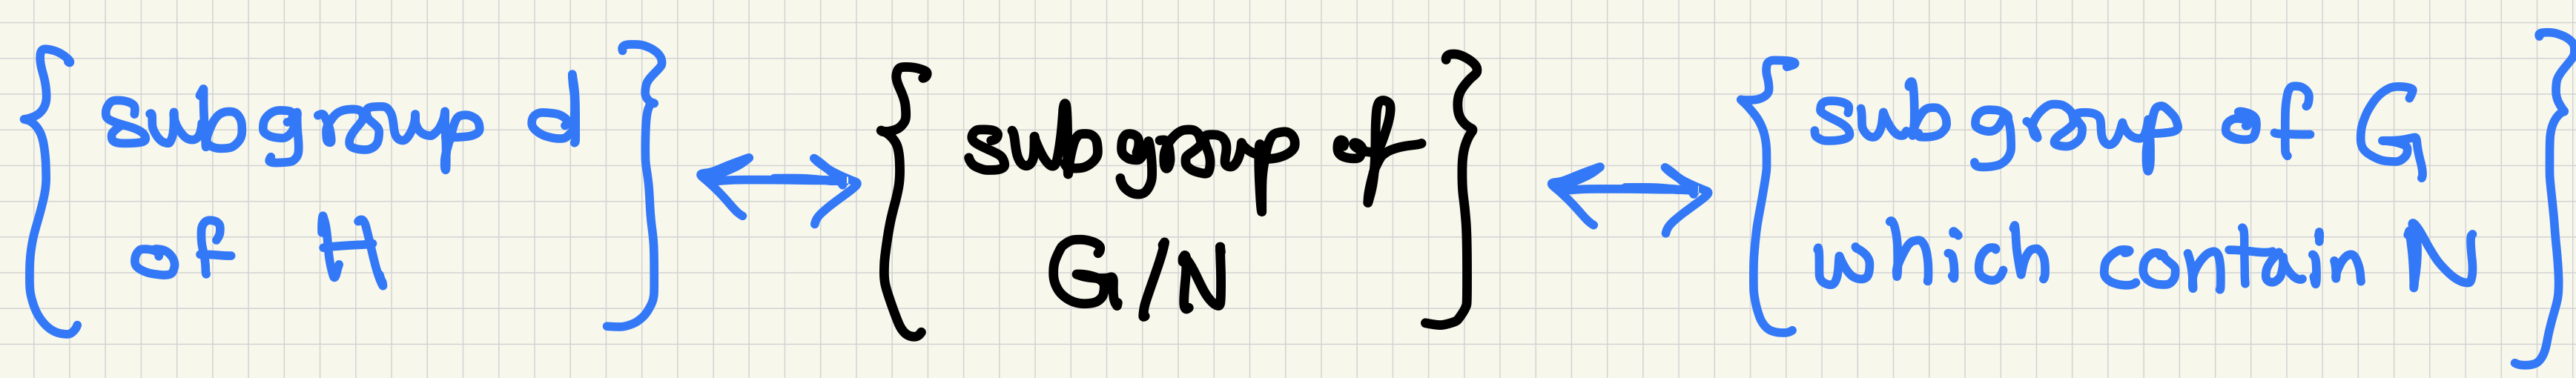 { subgroup d of H } ↔ { subgroup of G/N } ↔ { subgroup of G which contain N }